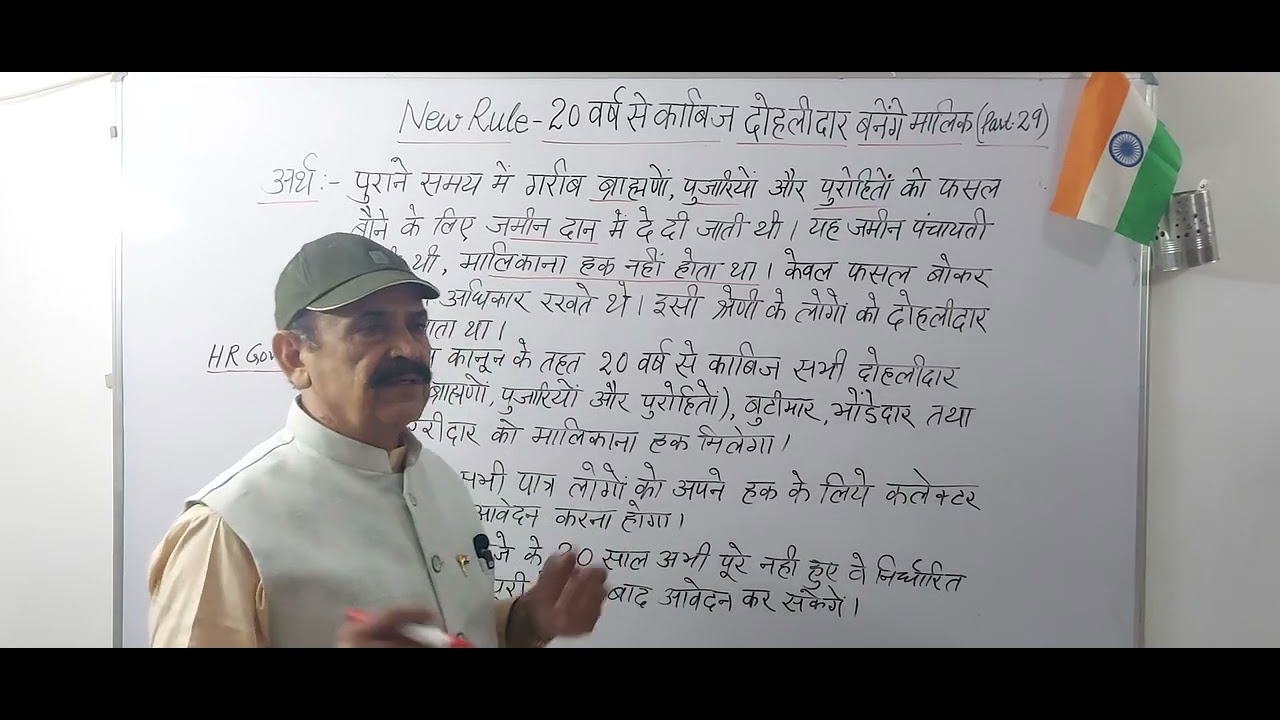 New Rule - 20 वर्ष से काबिज दोहलीदार बनेंगे मालिक (Part-29)
अर्थ :- पुराने समय में गरीब ब्राह्मणों, पुजारियों और पुरोहितों को फसल
बौने के लिए जमीन दान में दे दी जाती थी । यह जमीन पंचायती
थी, मालिकाना हक नहीं होता था । केवल फसल बोकर
अधिकार रखते थे । इसी श्रेणी के लोगों को दोहलीदार
था ।
HR कानून के तहत 20 वर्ष से काबिज सभी दोहलीदार
ब्राह्मणों, पुजारियों और पुरोहितों), बुटीमार, भोंडेदार तथा
को मालिकाना हक मिलेगा ।
सभी पात्र लोगों को अपने हक के लिये कलेक्टर
आवेदन करना होगा ।
के 20 साल अभी पूरे नही हुए वे निर्धारित
बाद आवेदन कर सकेगे ।